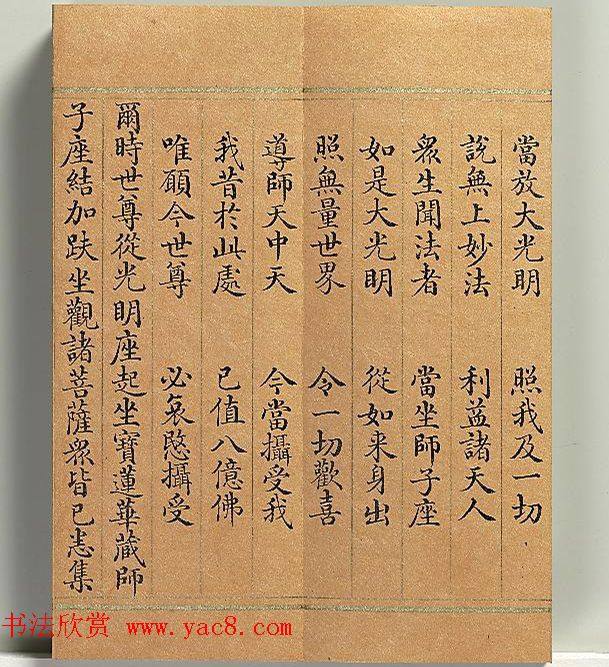 當放大光明 照我及一切
說無上妙法 利益諸天人
眾生聞法者 當坐師子座
如是大光明 從如来身出
照無量世界 令一切歡喜
導師天中天 今當攝受我
我昔於此處 已值八億佛
唯願今世尊 必哀愍攝受
爾時世尊從光明座起坐寶蓮華蔵師
子座結加趺坐觀諸菩薩眾皆已悉集
书法欣赏 www.yac8.com